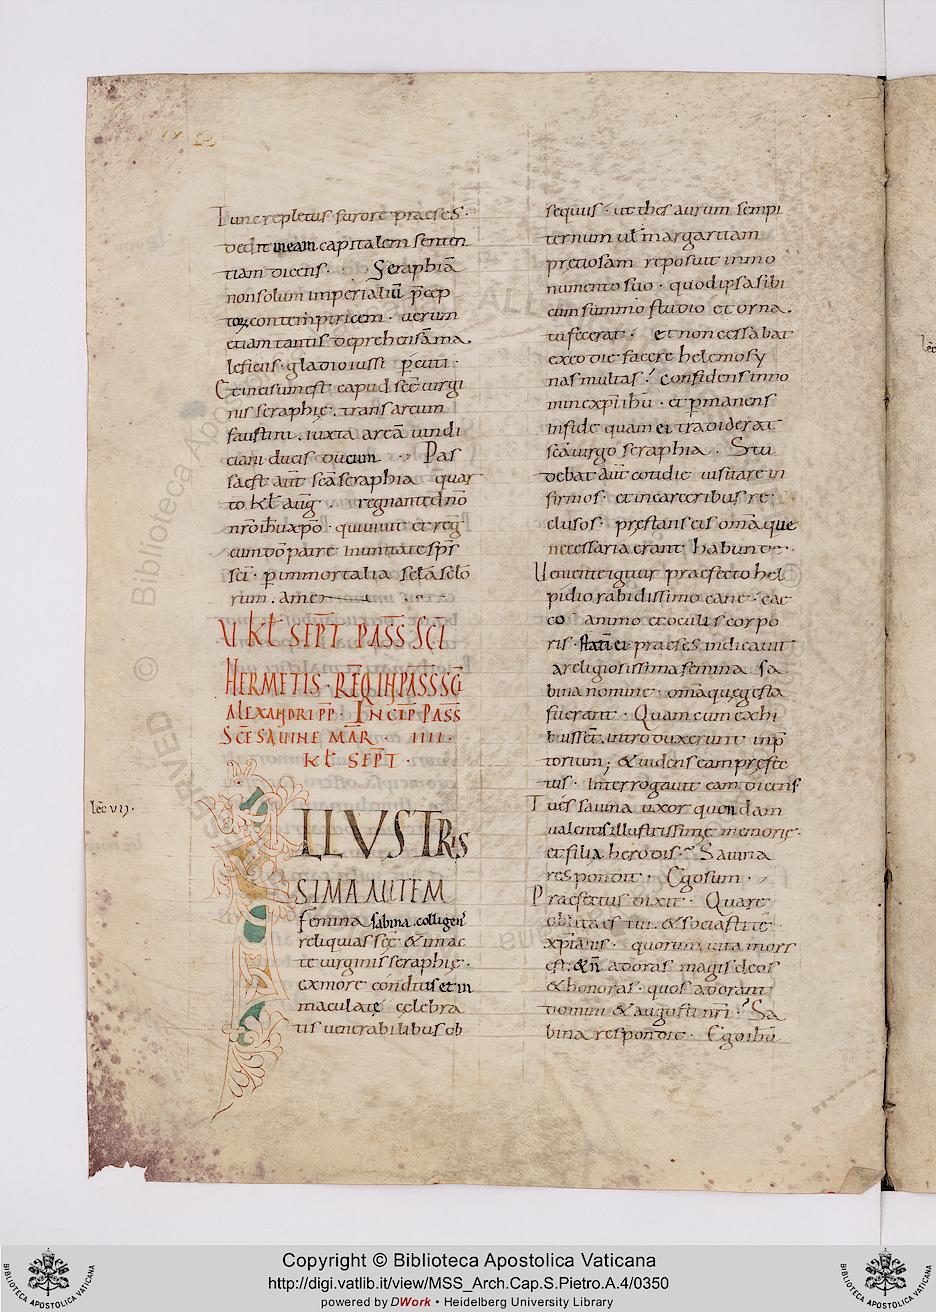 Tunc repletus furore praeses·
dedit in eam capitalem senten
tiam dicens· Seraphiā
non solum imperialiū p̄cep
toꝝ contemptricem · uerum
etiam tantis deprehensā ma
leficiis · gladio iussi p̄cuti ·
Et incisum est capud scē uirgi
nis seraphię · trans arcum
faustini · iuxta areā uindi
ciani ducis ducum · Pas
sa est aut̄ scā seraphia quar
to kł auḡ · regnante dn̄o
nr̄o ih̄u xp̄o · qui uiuit et reg̃
cum dō patre in unitate sp̄s
sci · p̄ immortalia sclā sclō
rum · amen
V KŁ SEPT PASS SCI
HERMETIS · REQ IH PASS SCI
ALEXANDRI PP · INCIP PASS
SCE SAVINE MAR · IIII ·
KŁ SEPT ·
lec̄ vij·
ILLVSTRIS
SIMA AUTEM
femina sabina colligens
reliquias scę & imac
te uirginis seraphię ·
ex more conditus et in
maculatę celebra
tis uenerabilibus ob
sequiis · ut thesaurum sempi
ternum uł margaritam
pretiosam reposuit in mo
numento suo · quod ipsa sibi
cum summo studio et orna
tu fecerat · et non cessabat
ex eo die facere helemosy
nas multas · confidens in no
mini xp̄i ih̄u · et p̄manens
in fide quam ei tradiderat
scā uirgo seraphia · Stu
debat aut̄ cotidie uisitare in
firmos · et in carceribus re
clusos · prestans eis omā que
necessaria erant habunde ·
Uenient igitur praefecto hel
pidio rabidissimo cane · cae
co animo et oculis corpo
ris · statī ei praeses indicauit
a religiosissima femina sa
bina nomine · omā quę gesta
fuerant · Quam cum exhi
buisset · introduxerunt in p̄
torium ; & uidens eam prefec
tus · Interrogauit eam dicens
Tu es sauina uxor quondam
ualentis illustrissimę memorię·
et filia herodis · Sauina
respondit · Ego sum ·
Praefectus dixit · Quare
oblita es tui · & sociasti te
xp̄ianis · quorum uita mors
est · & n̄ adoras magis deos
& honoras · quos adorant
domini & augusti nr̄i · Sa
bina respondit · Ego ih̄ū
Copyright © Biblioteca Apostolica Vaticana
http://digi.vatlib.it/view/MSS_Arch.Cap.S.Pietro.A.4/0350
powered by DWork • Heidelberg University Library